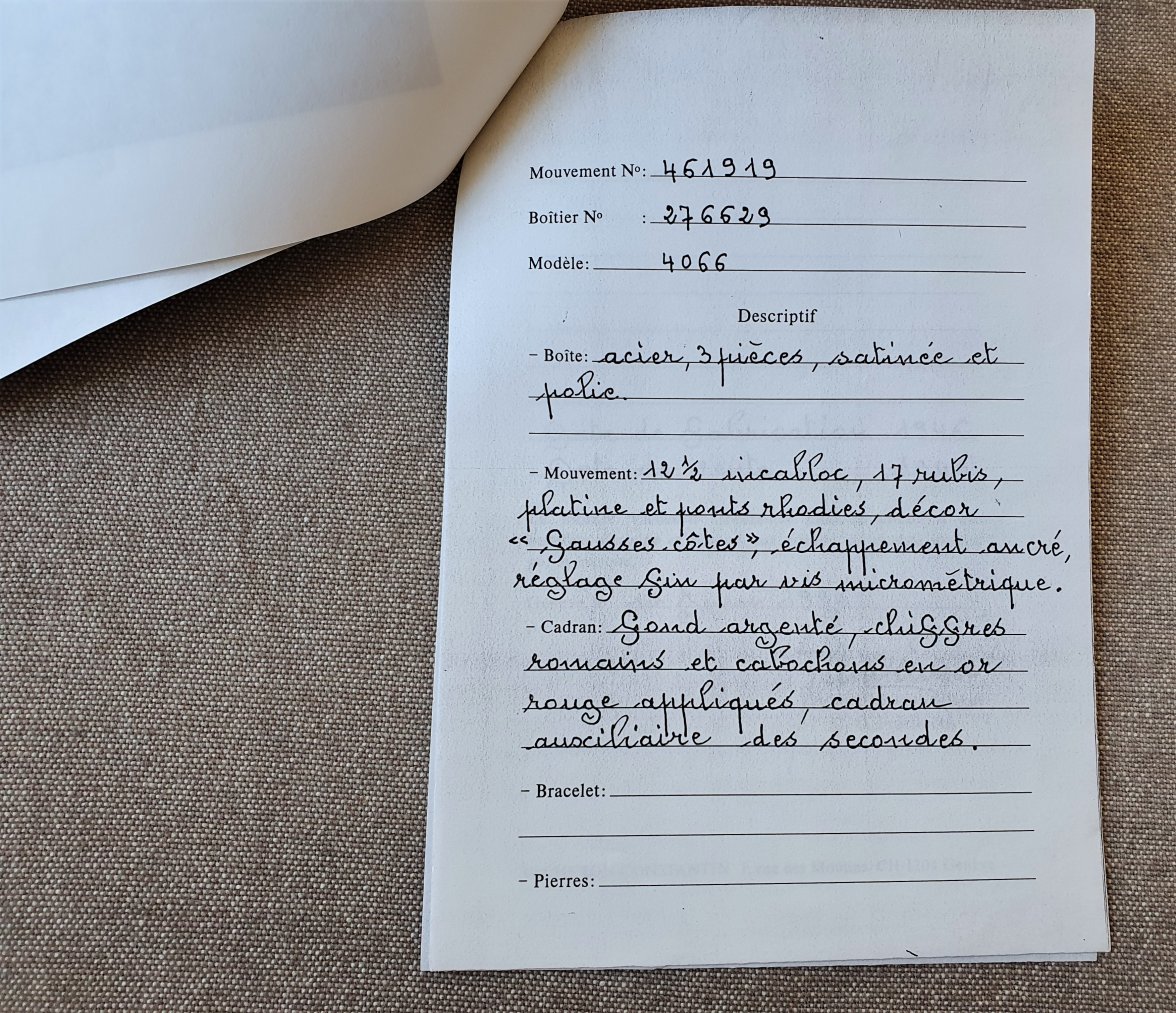 Mouvement Nº: 461919
Boîtier Nº : 276629
Modèle: 4066
Descriptif
– Boîte: acier, 3 pièces, satinée et
polie.
– Mouvement: 12 ½ incabloc, 17 rubis,
platine et ponts rhodies, décor
« fausses côtes », échappement ancré,
réglage fin par vis micromètrique.
– Cadran: fond argenté, chiffres
romains et cabochons en or
rouge appliqués, cadran
auxciliaire des secondes.
– Bracelet:
– Pierres: